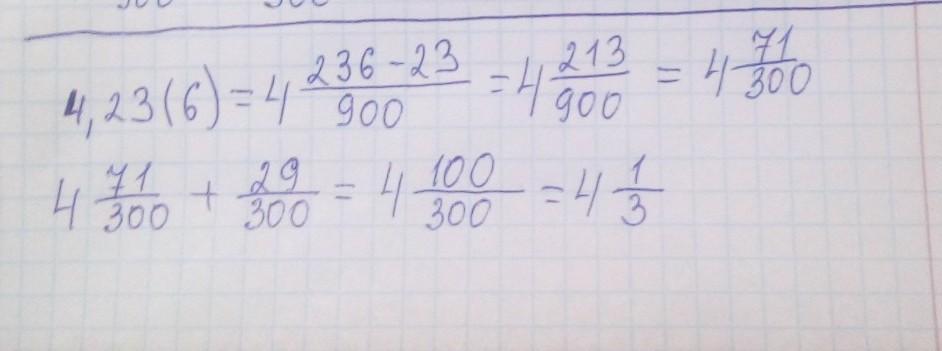 4,23(6) = 4 236-23/900 = 4 213/900 = 4 71/300
4 71/300 + 29/300 = 4 100/300 = 4 1/3